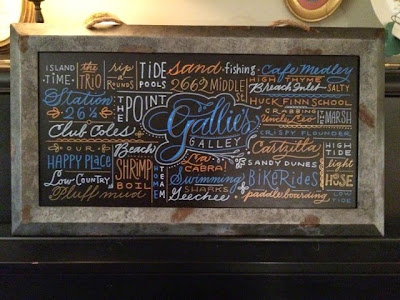 ISLAND TIME
the TRIO
sip a ROUNDS
TIDE POOLS
sand
fishing
2662 MIDDLE ST
Cafe Medley
HIGH THYME
Breach Inlet
SALTY
Station 26½
THE POINT
HUCK FINN SCHOOL
CRABBING
Uncle Leo
THE MARSH
CRISPY FLOUNDER
Gallie's
GALLEY
Club Coles
OUR HAPPY PLACE
Beach
SHRIMP BOIL
HOME TEAM
CABRA
Castzitta
SANDY DUNES
HIGH TIDE
light HOUSE
Low Country
Pluff mud
Swimming
SHARKS
Geechee
BIKE RIDES
paddleboarding
LOW TIDE